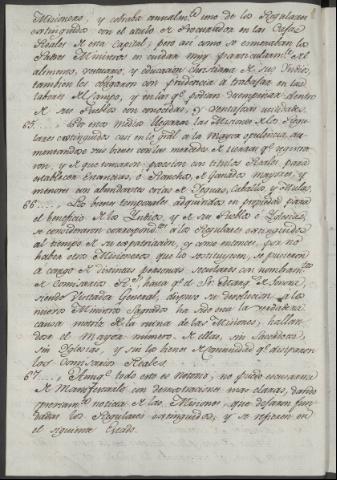 Misionero, y cobraba annualm.te uno de los Regulares
extinguidos con el titulo de Procurador en las Caxas
Reales de esta Capital; pero asi como se esmeraban los
Padres Ministros en cuidar muy particularm.te del
alimento, vestuario, y educacion christiana de sus Indios,
tambien les obligaron con prudencia á trabajar en las
labores del campo, y en las q.e podian desempeñar dentro
de sus Pueblos con conocidas, y ventajosas utilidades.
65.... Por estos medios llegaron las Misiones de los Regu-
lares extinguidos casi en lo gral á la mayor opulencia, au-
mentandose sus bienes con las mercedes de tierras q.e registra-
ron, y de que tomaron posesion con titulos Reales para
establecer Estancias, ó Ranchos de Ganados mayores, y
menores con abundantes crias de Yeguas, Caballos y Mulas.
66.... Los bienes temporales adquiridos en propiedad para
el beneficio de los Indios, y de sus Pueblos é Yglesias,
se consideraron correspond.tes á los Regulares extinguidos
al tiempo de su expatriacion, y como entonces, por no
haber otros Misioneros que los sostituyesen, se pusieron
á cargo de distintas personas seculares con nombram.to
de Comisarios R.s hasta q.e el Sr. Marq.s de Sonora,
siendo Visitador General, dispuso su devolucion á los
nuevos Ministros Sagrados ha sido esta la verdadera
causa matriz de la ruina de las Misiones, hallan-
dose el mayor numero de ellas, sin Sacerdotes,
sin Yglesias, y sin los bienes de Comunidad q.e disiparon
los Comisarios Reales.
67.... Aunq.e todo esto es notorio, no puedo escusarme
de manifestarlo con demostraciones mas claras, dando
previam.te noticia de las Misiones, que dexaron fun-
dadas los Regulares extinguidos, y se refieren en
el siguiente Estado.